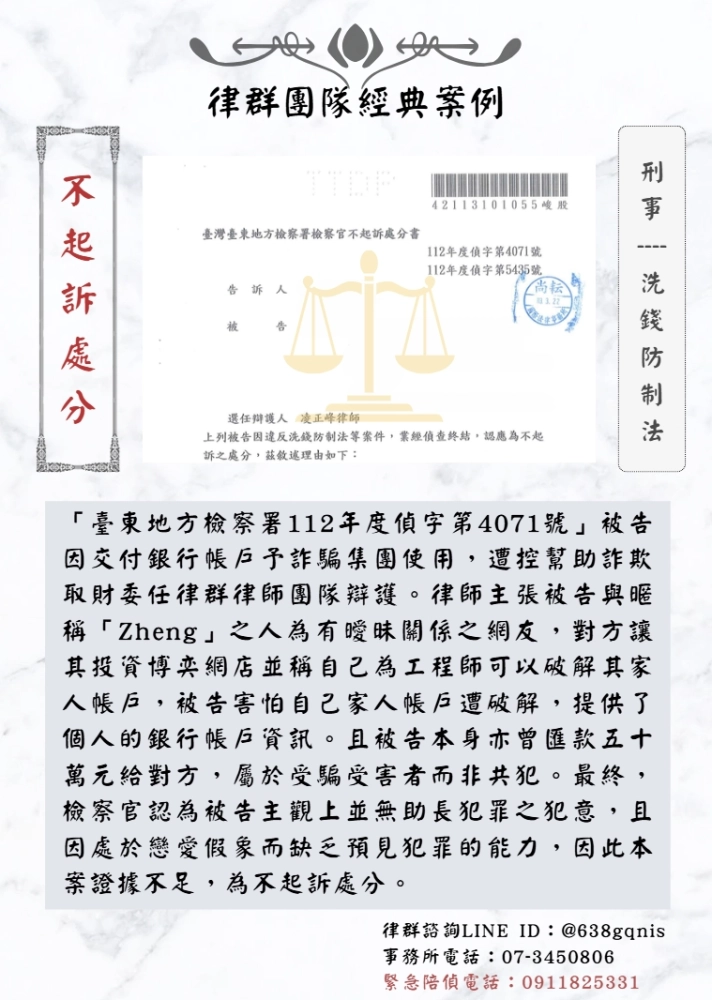 律群團隊經典案例
不起訴處分
刑事----洗錢防制法
TTDP
42113101055峻股
臺灣臺東地方檢察署檢察官不起訴處分書
112年度偵字第4071號
112年度偵字第5435號
告訴人
尚耘
被告
選任辯護人 凌正峰律師
上列被告因違反洗錢防制法等案件,業經偵查終結,認應為不起
訴之處分,茲敘述理由如下:
「臺東地方檢察署112年度偵字第4071號」被告
因交付銀行帳戶予詐騙集團使用,遭控幫助詐欺
取財委任律群律師團隊辯護。律師主張被告與暱
稱「Zheng」之人為有曖昧關係之網友,對方讓
其投資博奕網店並稱自己為工程師可以破解其家
人帳戶,被告害怕自己家人帳戶遭破解,提供了
個人的銀行帳戶資訊。且被告本身亦曾匯款五十
萬元給對方,屬於受騙受害者而非共犯。最終,
檢察官認為被告主觀上並無助長犯罪之犯意,且
因處於戀愛假象而缺乏預見犯罪的能力,因此本
案證據不足,為不起訴處分。
律群諮詢LINE ID:@638gqnis
事務所電話:07-3450806
緊急陪偵電話:0911825331